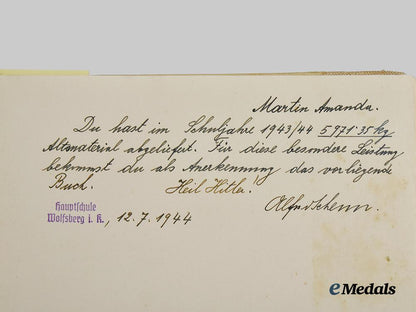 Martin Amanda.
Du hast im Schuljahre 1943/44 5971·35 kg
Altmaterial abgeliefert. Für diese besondere Leistung
bekommst du als Anerkennung das vorliegende
Buch. Heil Hitler.
Hauptschule
Wolfsberg i. K., 12.7.1944
eMedals